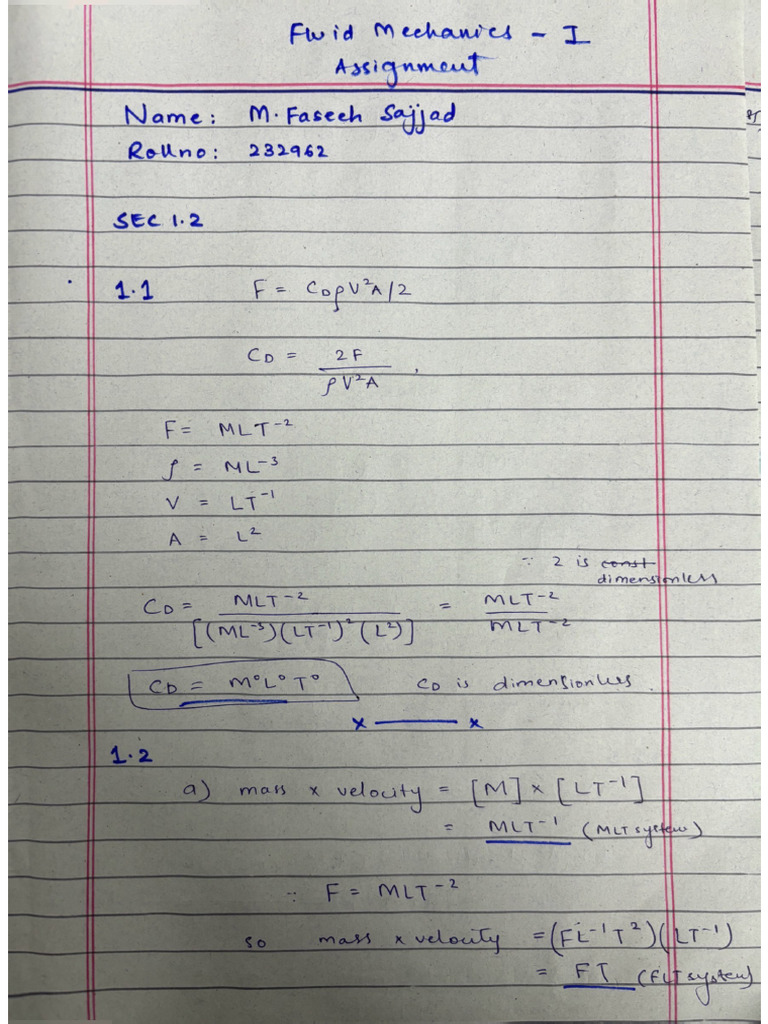 Fluid Mechanics - I
Assignment
Name: M. Faseeh Sajjad
Rollno: 232962
SEC 1.2
1.1 F = CDρV²A/2
CD = 2F / ρV²A
F = MLT⁻²
ρ = ML⁻³
V = LT⁻¹
A = L²
∵ 2 is const
dimensionless
CD = MLT⁻² / [(ML⁻³)(LT⁻¹)²(L²)] = MLT⁻² / MLT⁻²
CD = M⁰L⁰T⁰ CD is dimensionless.
x ——— x
1.2
a) mass x velocity = [M] x [LT⁻¹]
= MLT⁻¹ (MLT system)
∵ F = MLT⁻²
so mass x velocity = (FL⁻¹T²)(LT⁻¹)
= FT (FLT system)